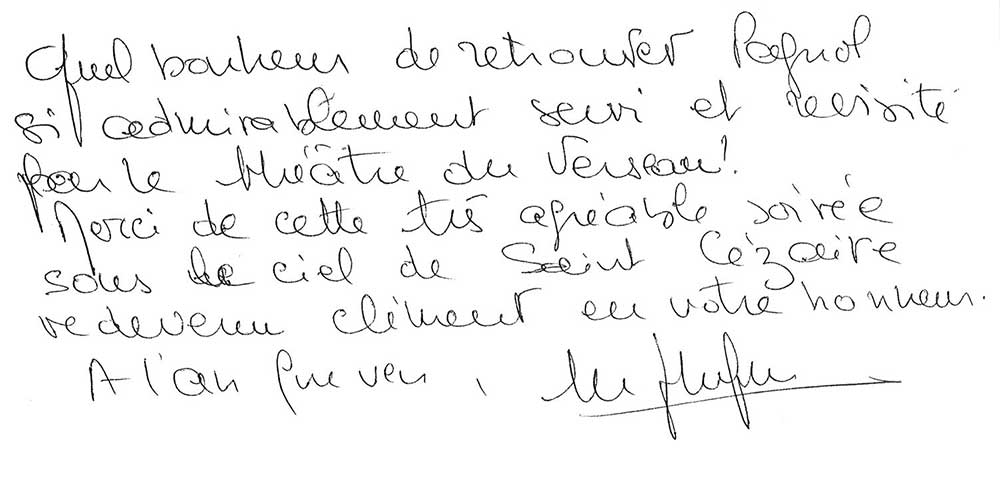 Quel bonheur de retrouver Pagnol
si admirablement servi et revisité
par le théâtre du Verseau!
Merci de cette très agréable soirée
sous le ciel de Saint Cézaire
redevenu clément en votre honneur.
A l'an que ven,